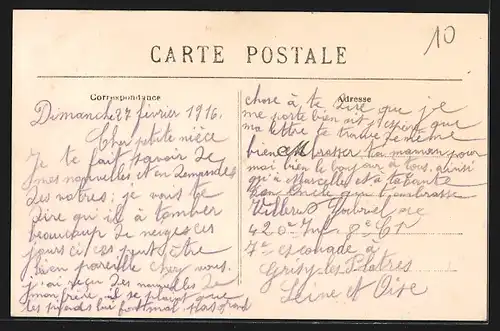 10
CARTE POSTALE
Correspondance
Adresse
Dimanche 27 février 1916.
Cher petite nièce
Je te fait savoir de
mes nouvelles et en demande
des votres; je vais te
dire qu il à tomber
beaucoup de neige ces
jours ci ces peut être
bien pareille chez vous.
j'ai reçu des nouvelles de
mon frère il se plaint que
les pieds lui font mal. Pas grand
chose à te dire que je
me porte bien et j'espère que
ma lettre te trouve de même
bien embrasser ta maman pour
moi bien le bonjour à tous, ainsi
qu'à Marcelle et à ta tante
ton oncle qui t'embrasse
Gabriel
420e Inf 8e
7e escouade à
Grisy-les-Platres
Seine et Oise